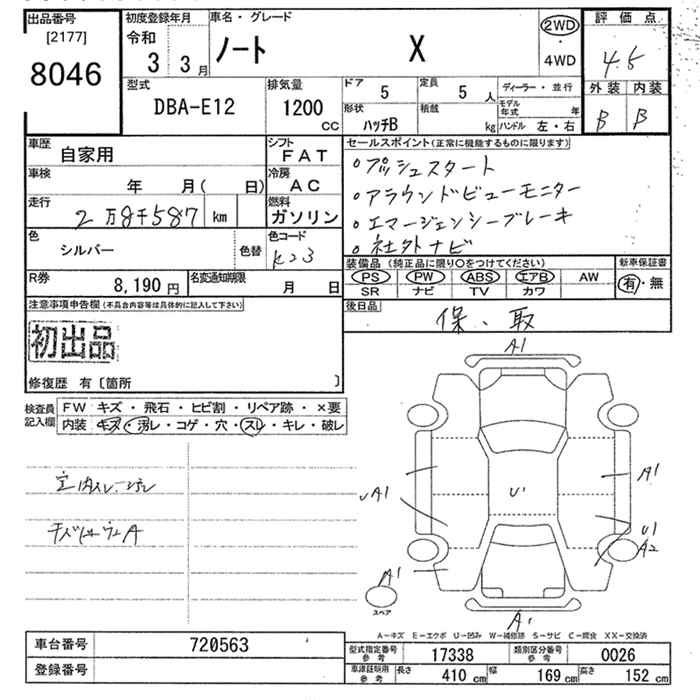 出品番号
[2177]
8046
初度登録年月
令和
3 3月
車名・グレード
ノート X
2WD
・
4WD
評価点
4.5
外装 内装
B B
型式
DBA-E12
排気量
1200
CC
ドア
5
定員
5人
形状
ハッチB
積載
kg
ディーラー・並行
モデル年式 年
ハンドル 左・右
車歴
自家用
シフト
FAT
車検
年 月( 日)
冷房
AC
走行
2万8千587 km
燃料
ガソリン
色
シルバー
色替
色コード
K23
R券
8,190円
名変通知期限
月 日
セールスポイント(正常に機能するものに限ります)
・プッシュスタート
・アラウンドビューモニター
・エマージェンシーブレーキ
・社外ナビ
装備品(純正品に限り○をつけてください)
新車保証書
PS PW ABS エアB AW
SR ナビ TV カワ
有・無
後日品
保、取
注意事項申告欄(不具合内容等は具体的に記入して下さい)
初出品
修復歴 有〔箇所 〕
検査員記入欄
FW キズ・飛石・ヒビ割・リペア跡・×要
内装 キズ・汚レ・コゲ・穴・スレ・キレ・破レ
A1
A1
A1
U1
U1
A2
A1
A1
スペア
A-キズ E-エクボ U-凹み W-補修跡 S-サビ C-腐食 XX-交換済
車台番号
720563
登録番号
型式指定番号
参考
17338
類別区分番号
参考
0026
車庫証明用
参考
長さ
410 cm
幅
169 cm
高さ
152 cm